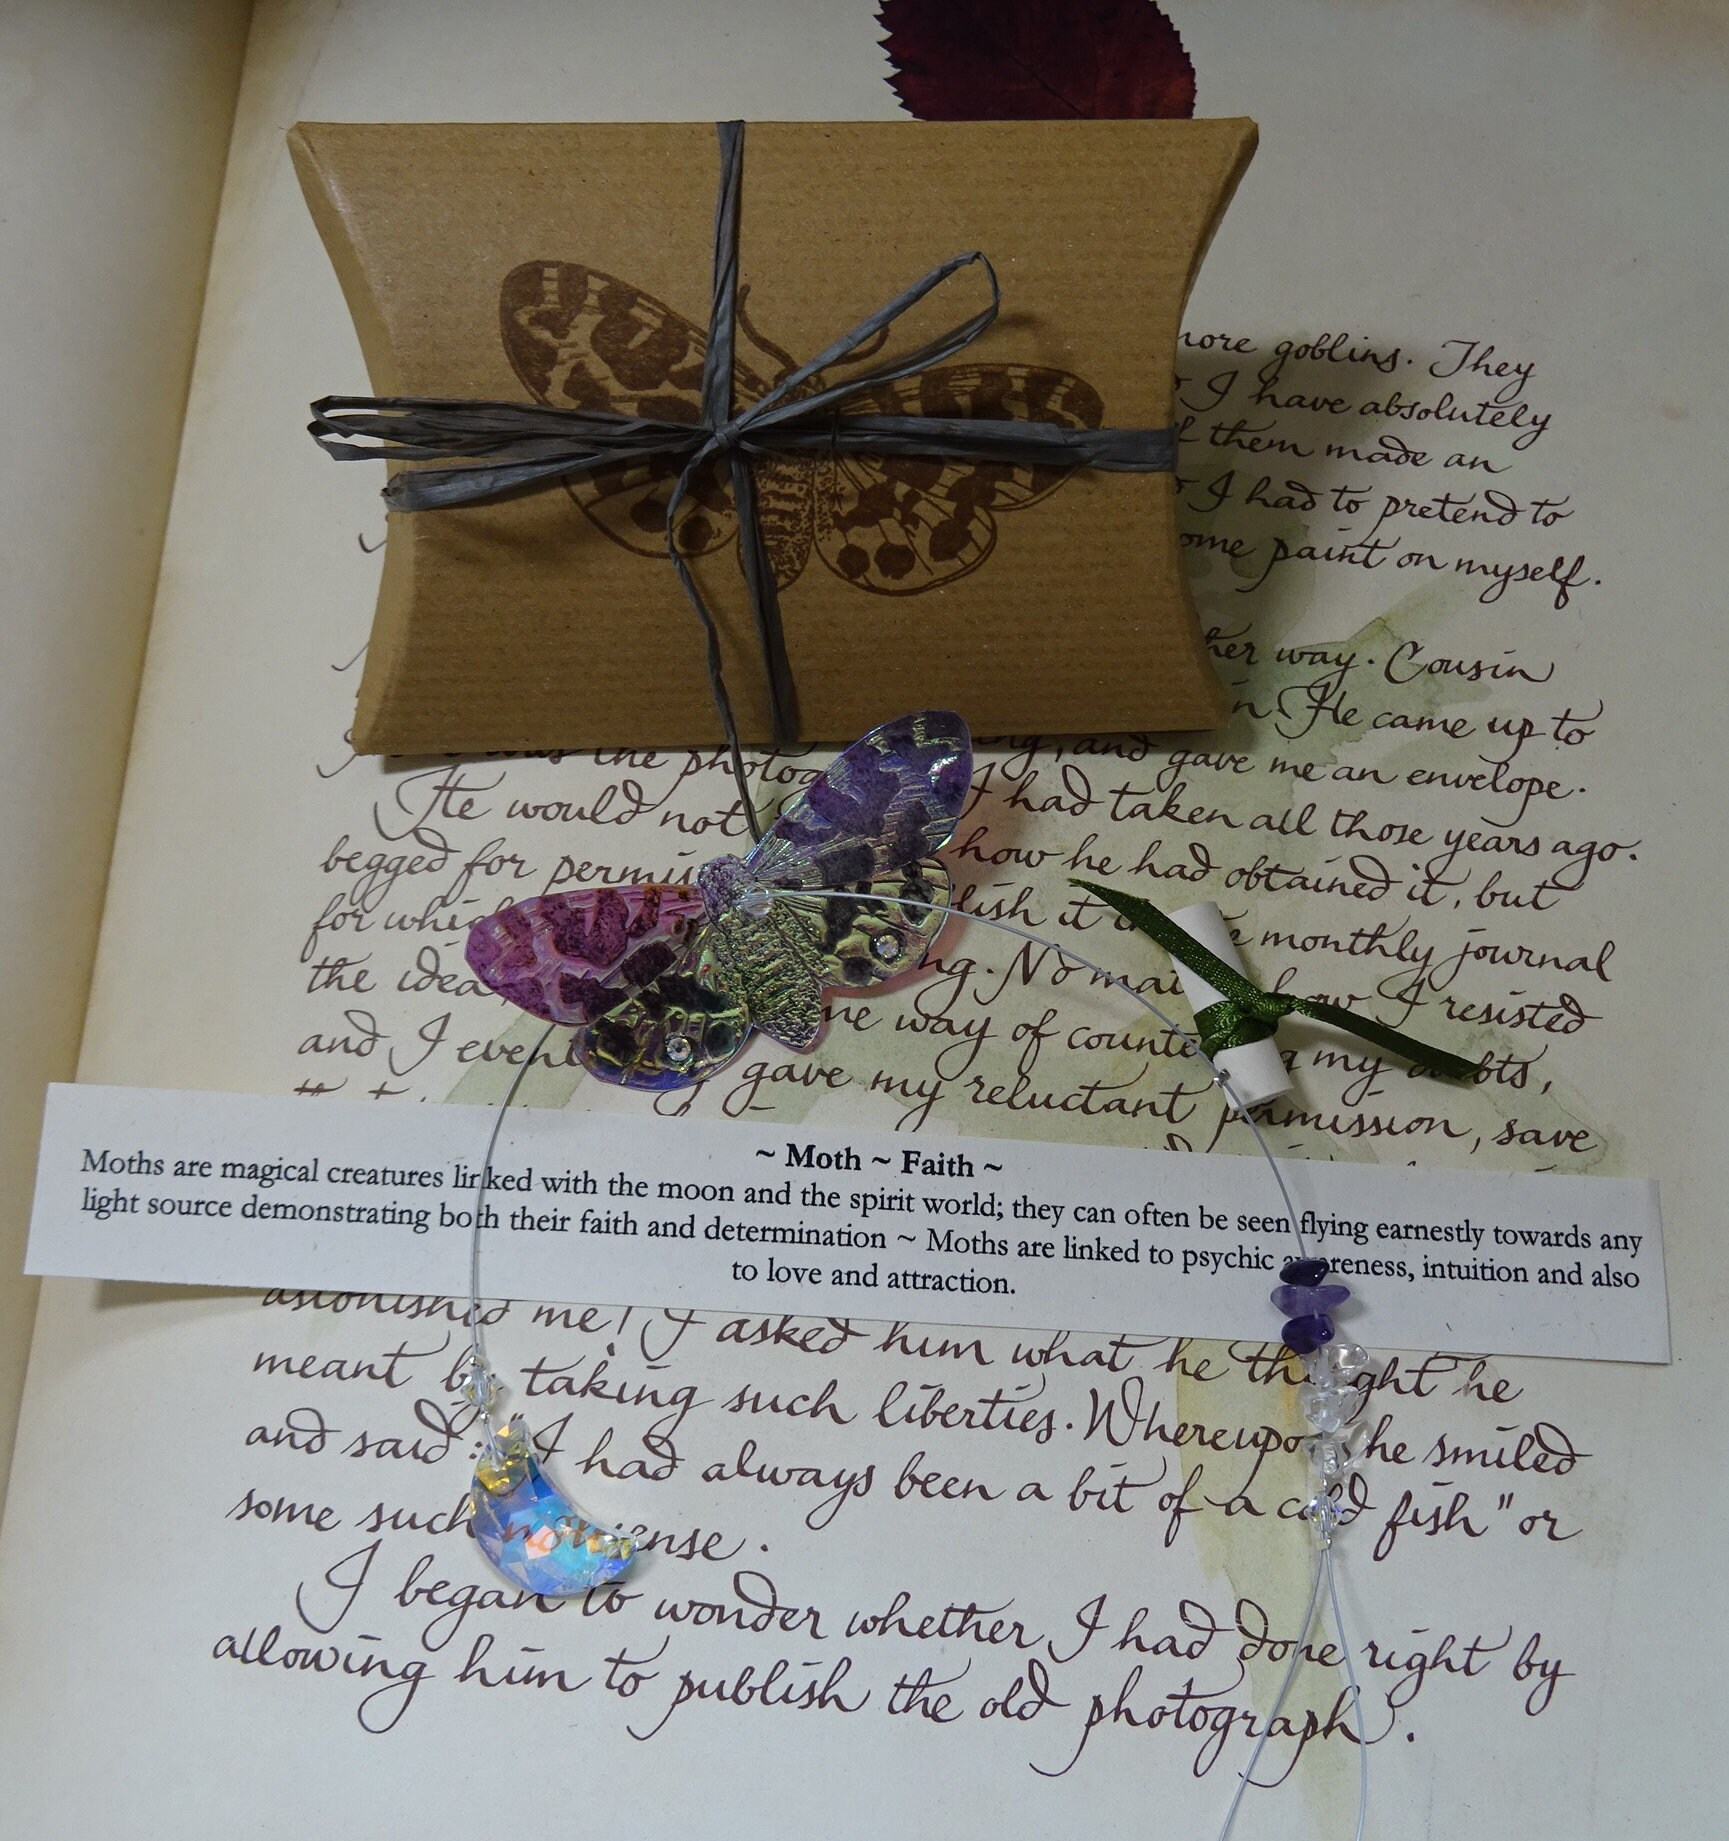 more goblins. They
I have absolutely
them made an
I had to pretend to
some paint on myself.
way. Cousin
in. He came up to
was the and gave me an envelope.
He would not I had taken all those years ago.
begged for how he had obtained it, but
for it monthly journal
the idea, No how I resisted
and I way of my
gave my reluctant permission, save
~ Moth ~ Faith ~
Moths are magical creatures linked with the moon and the spirit world; they can often be seen flying earnestly towards any
light source demonstrating both their faith and determination ~ Moths are linked to psychic awareness, intuition and also
to love and attraction.
astonished me! I asked him what he thought he
meant by taking such liberties. Whereupon he smiled
and said: "I had always been a bit of a cold fish" or
some such nonsense.
I began to wonder whether I had done right by
allowing him to publish the old photograph.